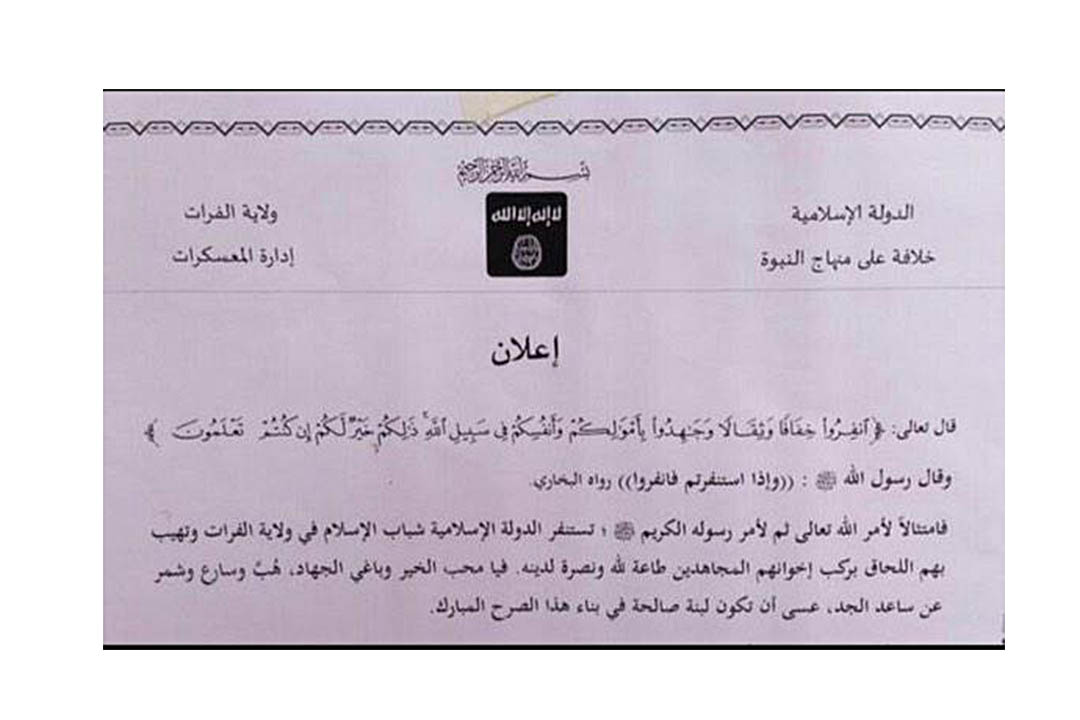 بسم الله الرحمن الرحيم
الدولة الإسلامية
خلافة على منهاج النبوة
لا إله إلا الله
الله
رسول
محمد
ولاية الفرات
إدارة المعسكرات
إعلان
قال تعالى: ﴿ ٱنفِرُواْ خِفَافًا وَثِقَالًا وَجَٰهِدُواْ بِأَمۡوَٰلِكُمۡ وَأَنفُسِكُمۡ فِي سَبِيلِ ٱللَّهِۚ ذَٰلِكُمۡ خَيۡرٞ لَّكُمۡ إِن كُنتُمۡ تَعۡلَمُونَ ﴾
وقال رسول الله ﷺ : ((وإذا استنفرتم فانفروا)) رواه البخاري.
فامتثالاً لأمر الله تعالى ثم لأمر رسوله الكريم ﷺ ؛ تستنفر الدولة الإسلامية شباب الإسلام في ولاية الفرات وتهيب
بهم اللحاق بركب إخوانهم المجاهدين طاعة لله ونصرة لدينه. فيا محب الخير وباغي الجهاد، هُبَّ وسارع وشمر
عن ساعد الجد، عسى أن تكون لبنة صالحة في بناء هذا الصرح المبارك.